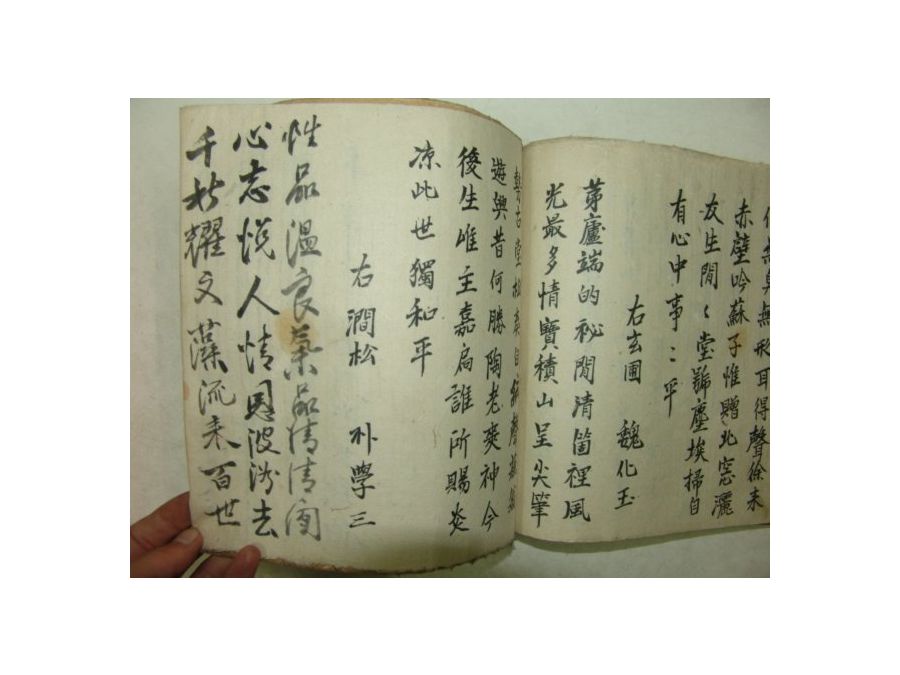 無臭無形耳得聲徐来
赤壁吟蘇子惟贈北窓灑
友生閒〻堂號塵埃掃自
有心中事〻平
右玄圃 魏化玉
茅廬端的祕閒清箇裡風
光最多情寶積山呈尖筆
古堂松
遊興昔何勝陶老爽神今
後生唯主嘉扄誰所賜炎
凉此世獨和平
右澗松 朴學三
性品温良氣品清清閒
心志悅人情恩波流去
千秋耀文藻流来百世